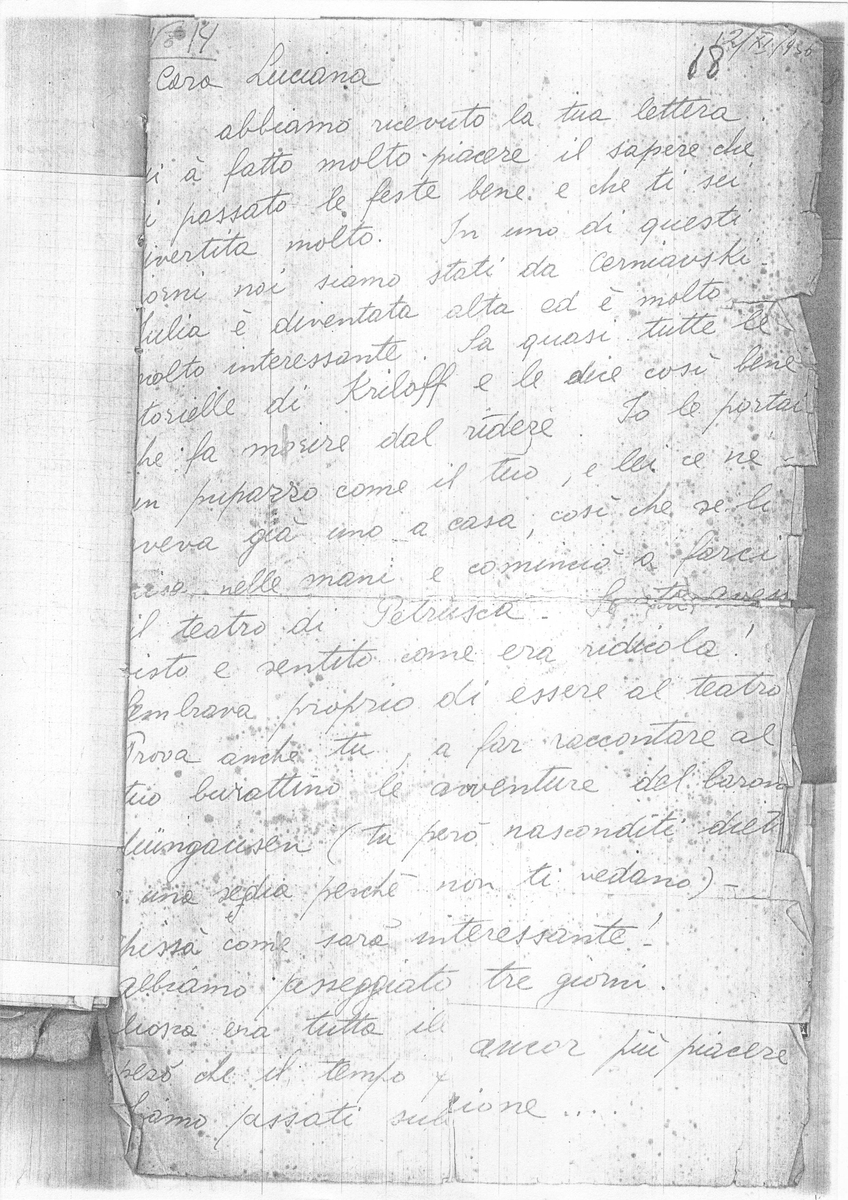 No 14
18 12/XI/1936
Cara Luciana
abbiamo ricevuto la tua lettera.
i à fatto molto piacere il sapere che
i passato le feste bene e che ti sei
ivertita molto. In uno di questi
orni noi siamo stati da Cerniavski.
ulia è diventata alta ed è molto
molto interessante. Sa quasi tutte le
torielle di Kriloff e le dice così bene
he fa morire dal ridere. Io le portai
un pupazzo come il tuo, e lei ce ne
aveva già uno a casa, così che se li
mise nelle mani e cominciò a farci
il teatro di Petrusca. Se tu avessi
isto e sentito come era ridicola!
Sembrava proprio di essere al teatro
Prova anche tu, a far raccontare al
tuo burattino le avventure del baron
Müngausen (tu però nasconditi diet
una sedia perché non ti vedano) -
hissà come sarà interessante!
abbiamo passeggiato tre giorni.
era tutta
ancor più piacere
però che il tempo
biamo passati sul
zione ....